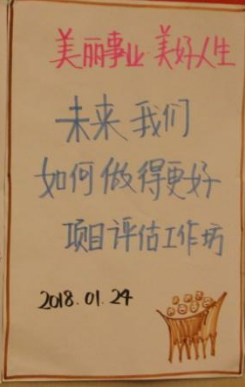 美丽事业 美好人生
未来我们
如何做得更好
项目评估工作坊
2018.01.24